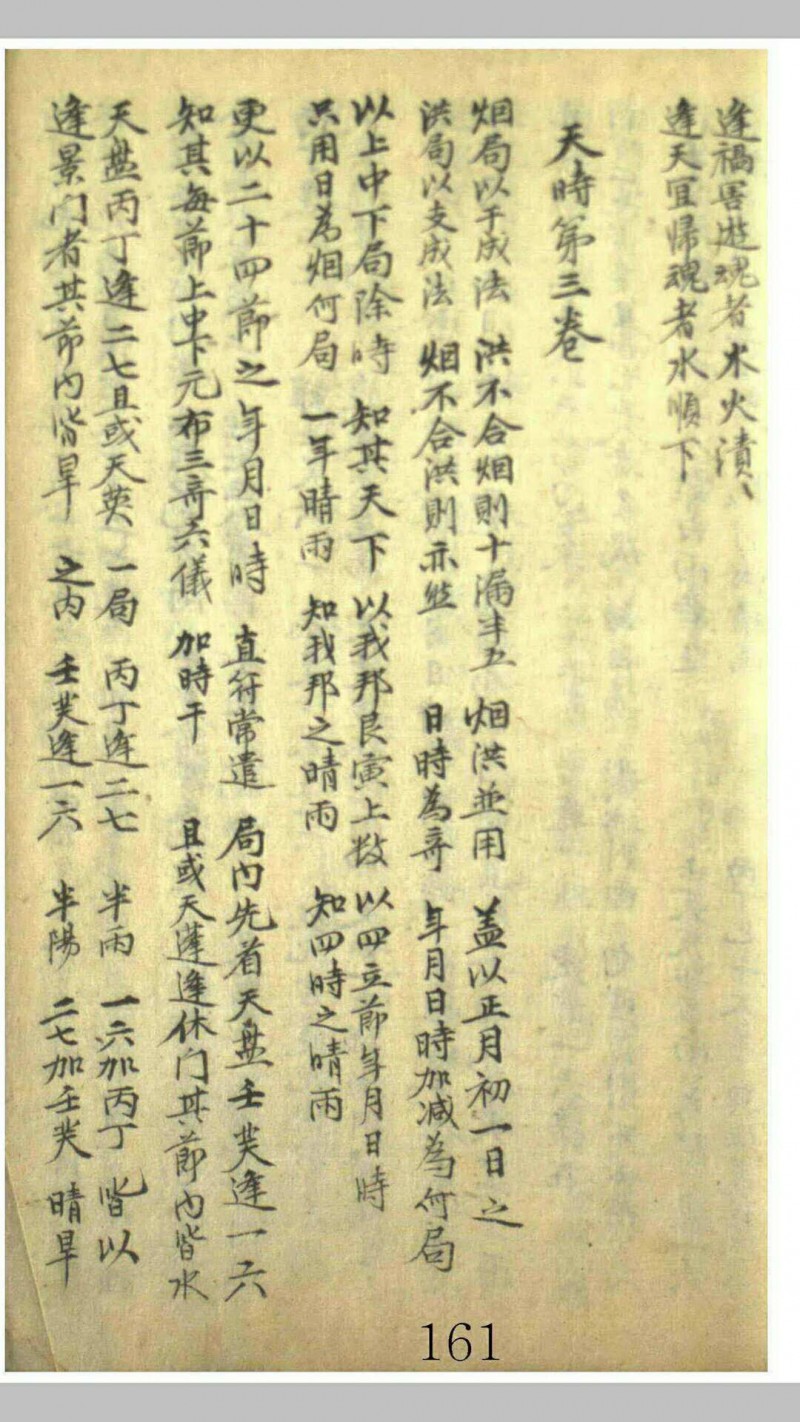 逢禍害遊魂者水火漬〻
逢天宜歸魂者水順下
天時第三卷
烟局以干成法 洪不合烟則十漏半五 烟洪並用 盖以正月初一日之
洪局以支成法 烟不合洪則亦然 日時為奇 年月日時加减為何局
以上中下局除時 知其天下 以我邦艮寅上数 以四立節年月日時
只用日為烟何局 一年晴雨 知我邦之晴雨 知四時之晴雨
更以二十四節之年月日時 直符常遣 局内先看天盤壬癸逢一六
知其每節上中下元布三奇六儀 加時干 且或天蓬逢休门其節内皆水
天盤丙丁逢二七且或天英 一局 丙丁逢二七 半雨 一六加丙丁 皆以
逢景门者其節内皆旱 之内 壬癸逢一六 半陽 二七加壬癸 晴旱
161